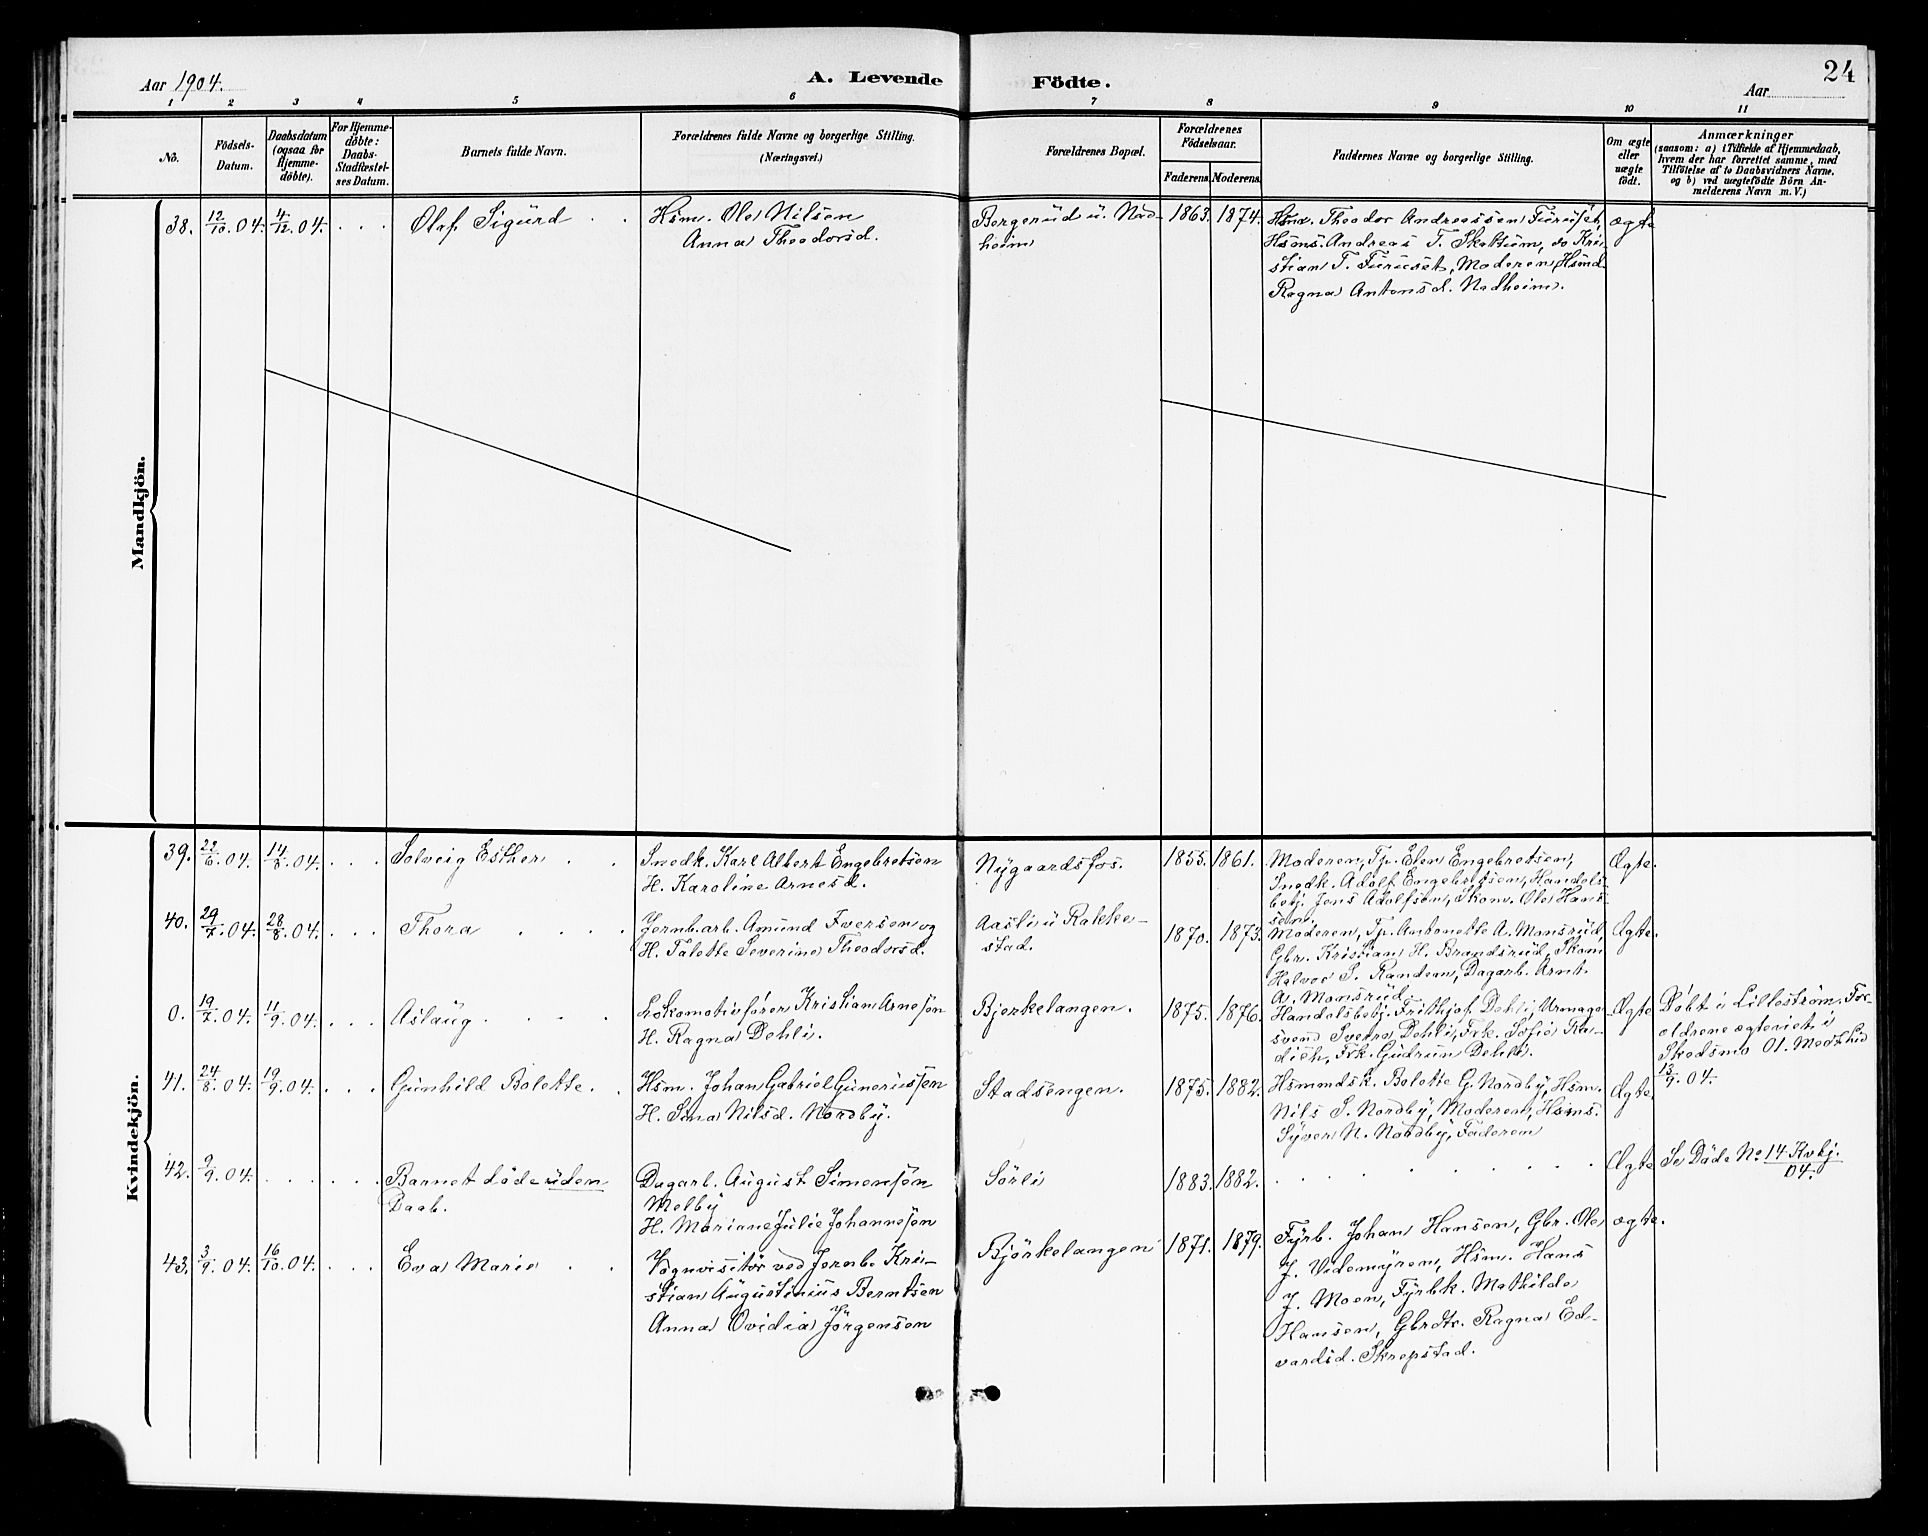 24
Aar 1904.
A. Levende
Födte.
Aar
1 2 3 4 5 6 7 8 9 10 11
No.
Födsels-
Datum.
Daabsdatum
(ogsaa for
Hjemme-
döbte).
For Hjemme-
döbte:
Daabs-
Stadfæstel-
ses Datum.
Barnets fulde Navn.
Forældrenes fulde Navne og borgerlige Stilling.
(Næringsvei.)
Forældrenes Bopæl.
Forældrenes
Födselsaar.
Faderens. Moderens.
Faddernes Navne og borgerlige Stilling.
Om ægte
eller
uægte
födt.
Anmærkninger
(saasom: a) i Tilfælde af Hjemmedaab,
hvem der har forrettet samme, med
Tilföielse af to Daabsvidners Navne.
og b) ved uægtefödte Börn An-
melderens Navn m. V.)
Mandkjön.
38. 12/10.04. 4/12.04. . . . Olaf Sigurd . .
Hsm. Ole Nilsen
Anna Theodorsd.
Bergerud u. Nad-
heim
1863. 1874.
Hsm. Theodor Andreassen Furuset,
Hsms. Andreas T. Skattum, do Kri-
stian T. Furuset, Moderen, Hsmd.
Ragna Antonsd. Nadheim.
ægte
Kvindekjön.
39. 22/6.04. 14/8.04. . . . Solveig Esther . .
Snedk. Karl Albert Engebretsen
H. Karoline Arnesd.
Nygaardsfos.
1855. 1861.
Moderen, Tp. Elen Engebretsen,
Snedk. Adolf Engebretsen, Handels-
betj. Jens Adolfsen, Skom. Ole Hans-
sen.
Ægte.
40. 29/7.04. 28/8.04. . . . Thora . . . .
Jernb.arb. Amund Iversen og
H. Talette Severine Theodorsd.
Aasli u Rakke-
stad.
1870. 1873.
Moderen, Tp. Antonette A. Mansrud,
Gbr. Kristian H. Brandsrud, Skom
Halvor S. Randem, Dagarb. Arnt.
A. Mansrud
Ægte.
0. 19/7.04. 11/9.04. . . . Aslaug . . . .
Lokomotivfører Kristian Arnesen
H. Ragna Dehli.
Bjerkelangen.
1875. 1876.
Handelsbetj. Frithjof Dehli, Urmager-
svend Sverre Dehli, Frk. Sofie Ra-
dich, Frk. Gudrun Dehli.
Ægte
Døbt i Lillestrøm. For-
ældrene ægteviet i
Skedsmo 01. Medhold
13/9.04.
41. 24/8.04. 19/9.04. . . . Gunhild Bolette. .
Hsm. Johan Gabriel Gunerussen
H. Sina Nilsd. Nordby.
Stadsengen.
1875. 1882.
Hsmmdsk. Bolette G. Nordby, Hsm.
Nils S. Nordby, Moderen, Hsms.
Syver N. Nordby, Faderen
Ægte.
42. 9/9.04. . . . . . . Barnet døde uden
Daab.
Dagarb. August Simensen
Melby
H. Mariane Julie Johannesen
Sørli
1883. 1882. . . . . . . . .
Ægte
Se Døde No 14 Kvkj./04.
43. 3/9.04. 16/10.04. . . . Eva Marie . .
Vognvisitør ved Jernb. Kri-
stian Augustinius Berntsen
Anna Ovidia Jørgensen
Bjørkelangen
1871. 1879.
Fyrb. Johan Hansen, Gbr. Ole
J. Videmyren, Hsm. Hans
J. Moen, Fyrbk. Mathilde
Hansen, Gbrdtr. Ragna Ed-
vardsd. Skrepstad.
ægte.